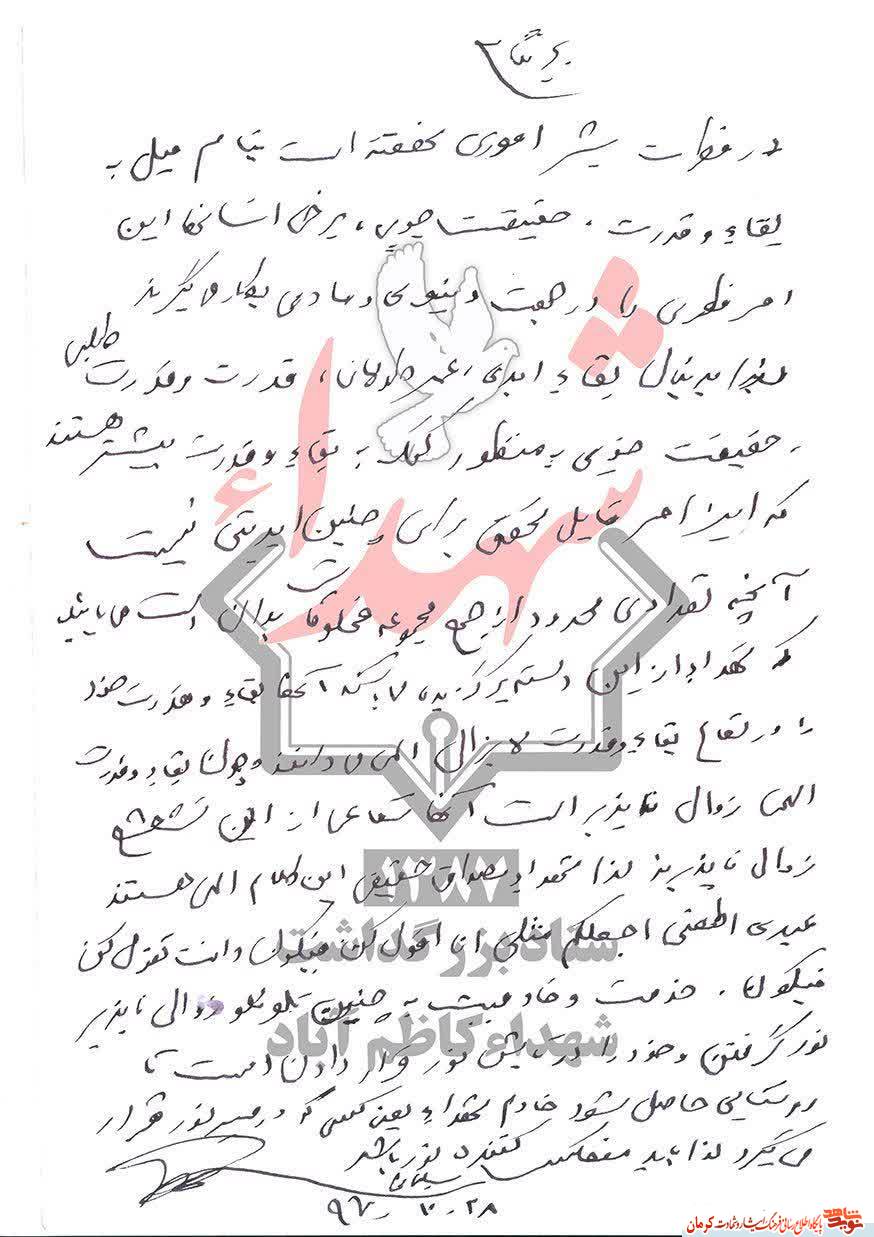 بسمه تعالی
در فطرت بشر اموری نهفته است بنام میل به
بقاء و قدرت، حقیقت جویی، برخی انسانها این
امر فطری را در جهت دنیوی و مادی بکار می‌گیرند
لذا بدنبال بقاء ابدی، عمر طولانی، قدرت و قدرت طلبی
، حقیقت جویی به منظور کمک به بقاء و قدرت بیشتر هستند
که این امر قابل تحقق برای چنین ابدیتی نیست
آنچه تعدادی محدود از جمع مجموعه مخلوقات بدان دست می‌یابند
که شهدا از این دسته برگزیده‌اند آنها بقاء و قدرت خود
را در شعاع بقاء و قدرت لایزالی الهی می‌دانند و چون بقاء و قدرت
الهی زوال ناپذیر است آنها شعاعی از این تشعشع
زوال ناپذیرند لذا شهداء مصداق حقیقی این کلام الهی هستند
عبدی اطعنی اجعلکم مثلی انا اقول کن فیکون و انت تقول کن
فیکون. خدمت و خادمیت به چنین تلولو زوالی ناپذیر
نور گرفتن و خود را در تابش نور قرار دادن است تا
روشنایی حاصل شود خادم شهداء یعنی کسی که در مسیر نور قرار
می‌گیرد لذا باید منعکس کننده نور باشد
سلیمانی
۹۶،۱۰،۲۸
شهداء
۱۳۸۷
ستاد بزرگداشت
شهداء کاظم آباد
نوید شاهد
پایگاه اطلاع رسانی فرهنگ ایثار و شهادت کرمان